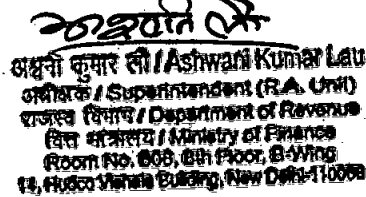 अश्वनी लौ
अश्वनी कुमार लौ / Ashwani Kumar Lau
अधीक्षक / Superintendent (R.A. Unit)
राजस्व विभाग / Department of Revenue
वित्त मंत्रालय / Ministry of Finance
Room No. 606, 6th Floor, B-Wing
14, Hudco Vishala Building, New Delhi-110066